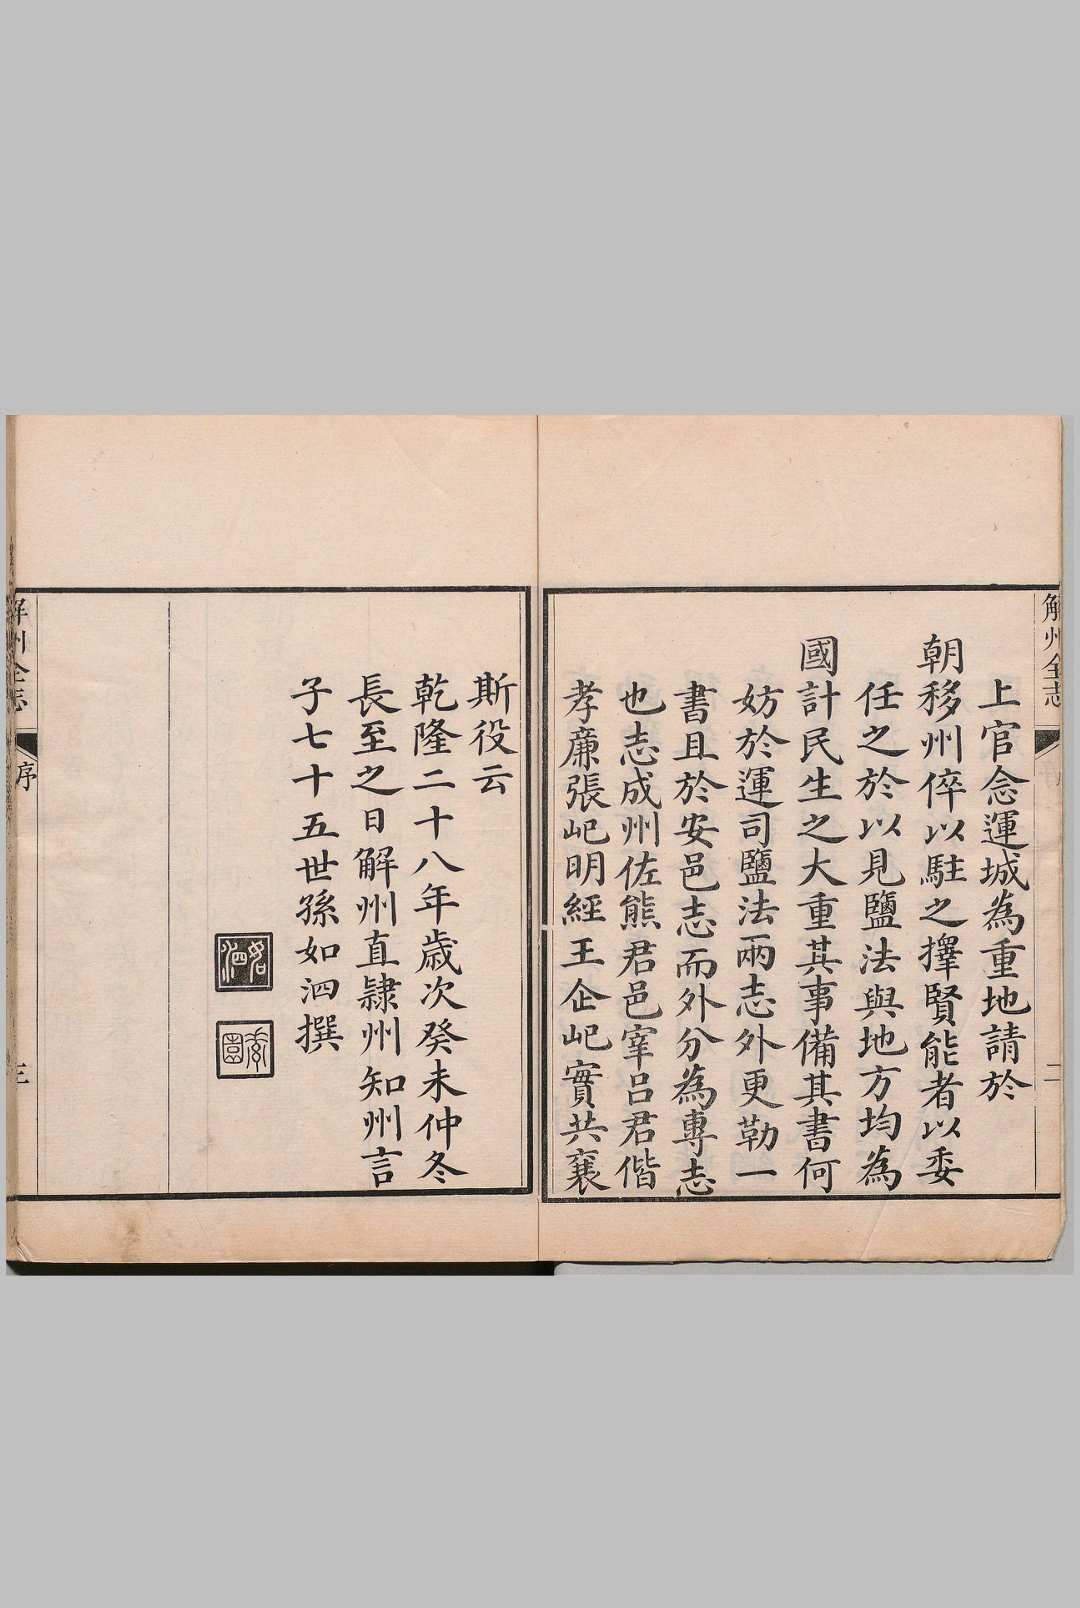 解州全志
二
上官念運城為重地請於
朝移州倅以駐之擇賢能者以委
任之於以見鹽法與地方均為
國計民生之大重其事備其書何
妨於運司鹽法兩志外更勒一
書且於安邑志而外分為專志
也志成州佐熊君邑宰呂君偕
孝廉張屺明經王企屺實共襄
斯役云
乾隆二十八年歲次癸未仲冬
長至之日解州直隸州知州言
子七十五世孫如泗撰
如泗
素園
解州全志
序
三